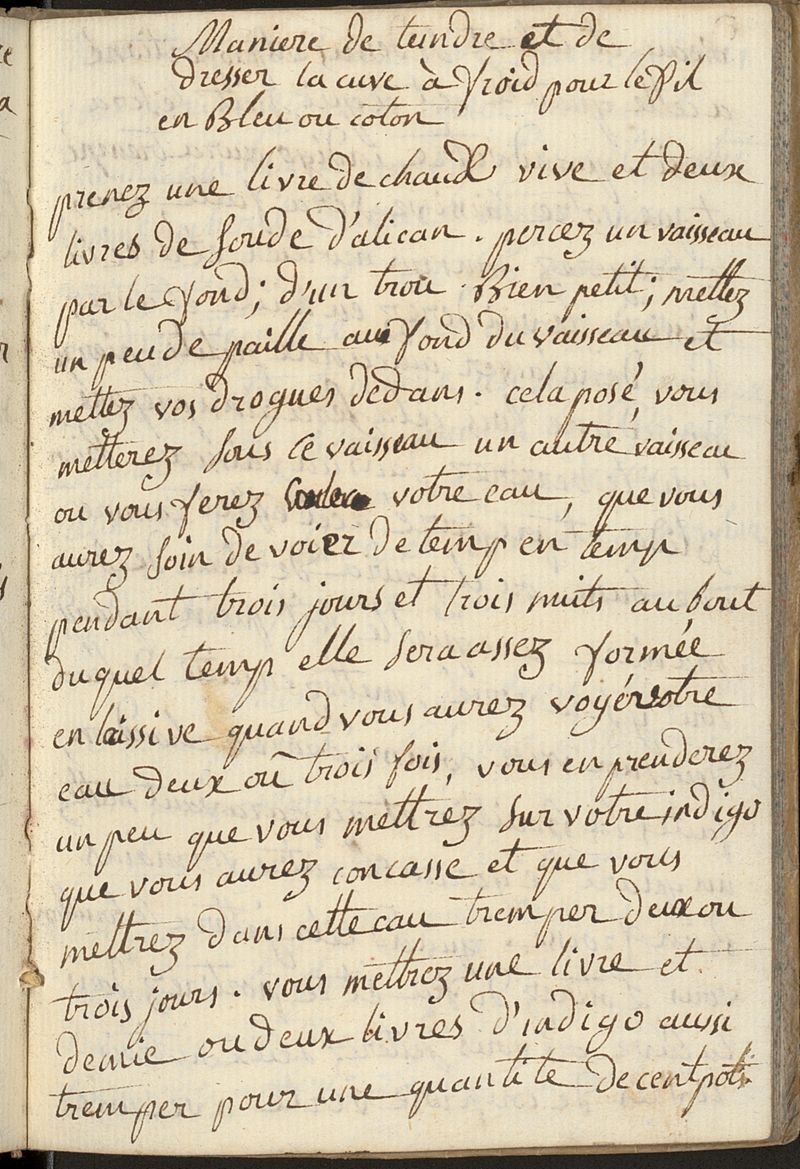 Maniere de teindre et de
dresser la cuve à froid pour le fil
en Bleu ou coton
prenez une livre de chaux vive et deux
livres de soude d'alican. percez un vaisseau
par le fond; d'un trou Bien petit; mettez
un peu de paille au fond du vaisseau et
mettez vos drogues dedans. cela posé, vous
metterez sous ce vaisseau un autre vaisseau
ou vous ferez couler votre eau, que vous
aurez soin de voier de temp en temp
pendant trois jours et trois nuits au bout
du quel temp elle sera assez formée
en lassive quand vous aurez voyér votre
eau deux ou trois fois, vous en prenderez
un peu que vous mettrez sur votre indigo
que vous aurez concasse et que vous
mettrez dans cette eau tremper deux ou
trois jours. vous mettrez une livre et
demie ou deux livres d'indigo aussi
tremper pour une quantite de cent pots